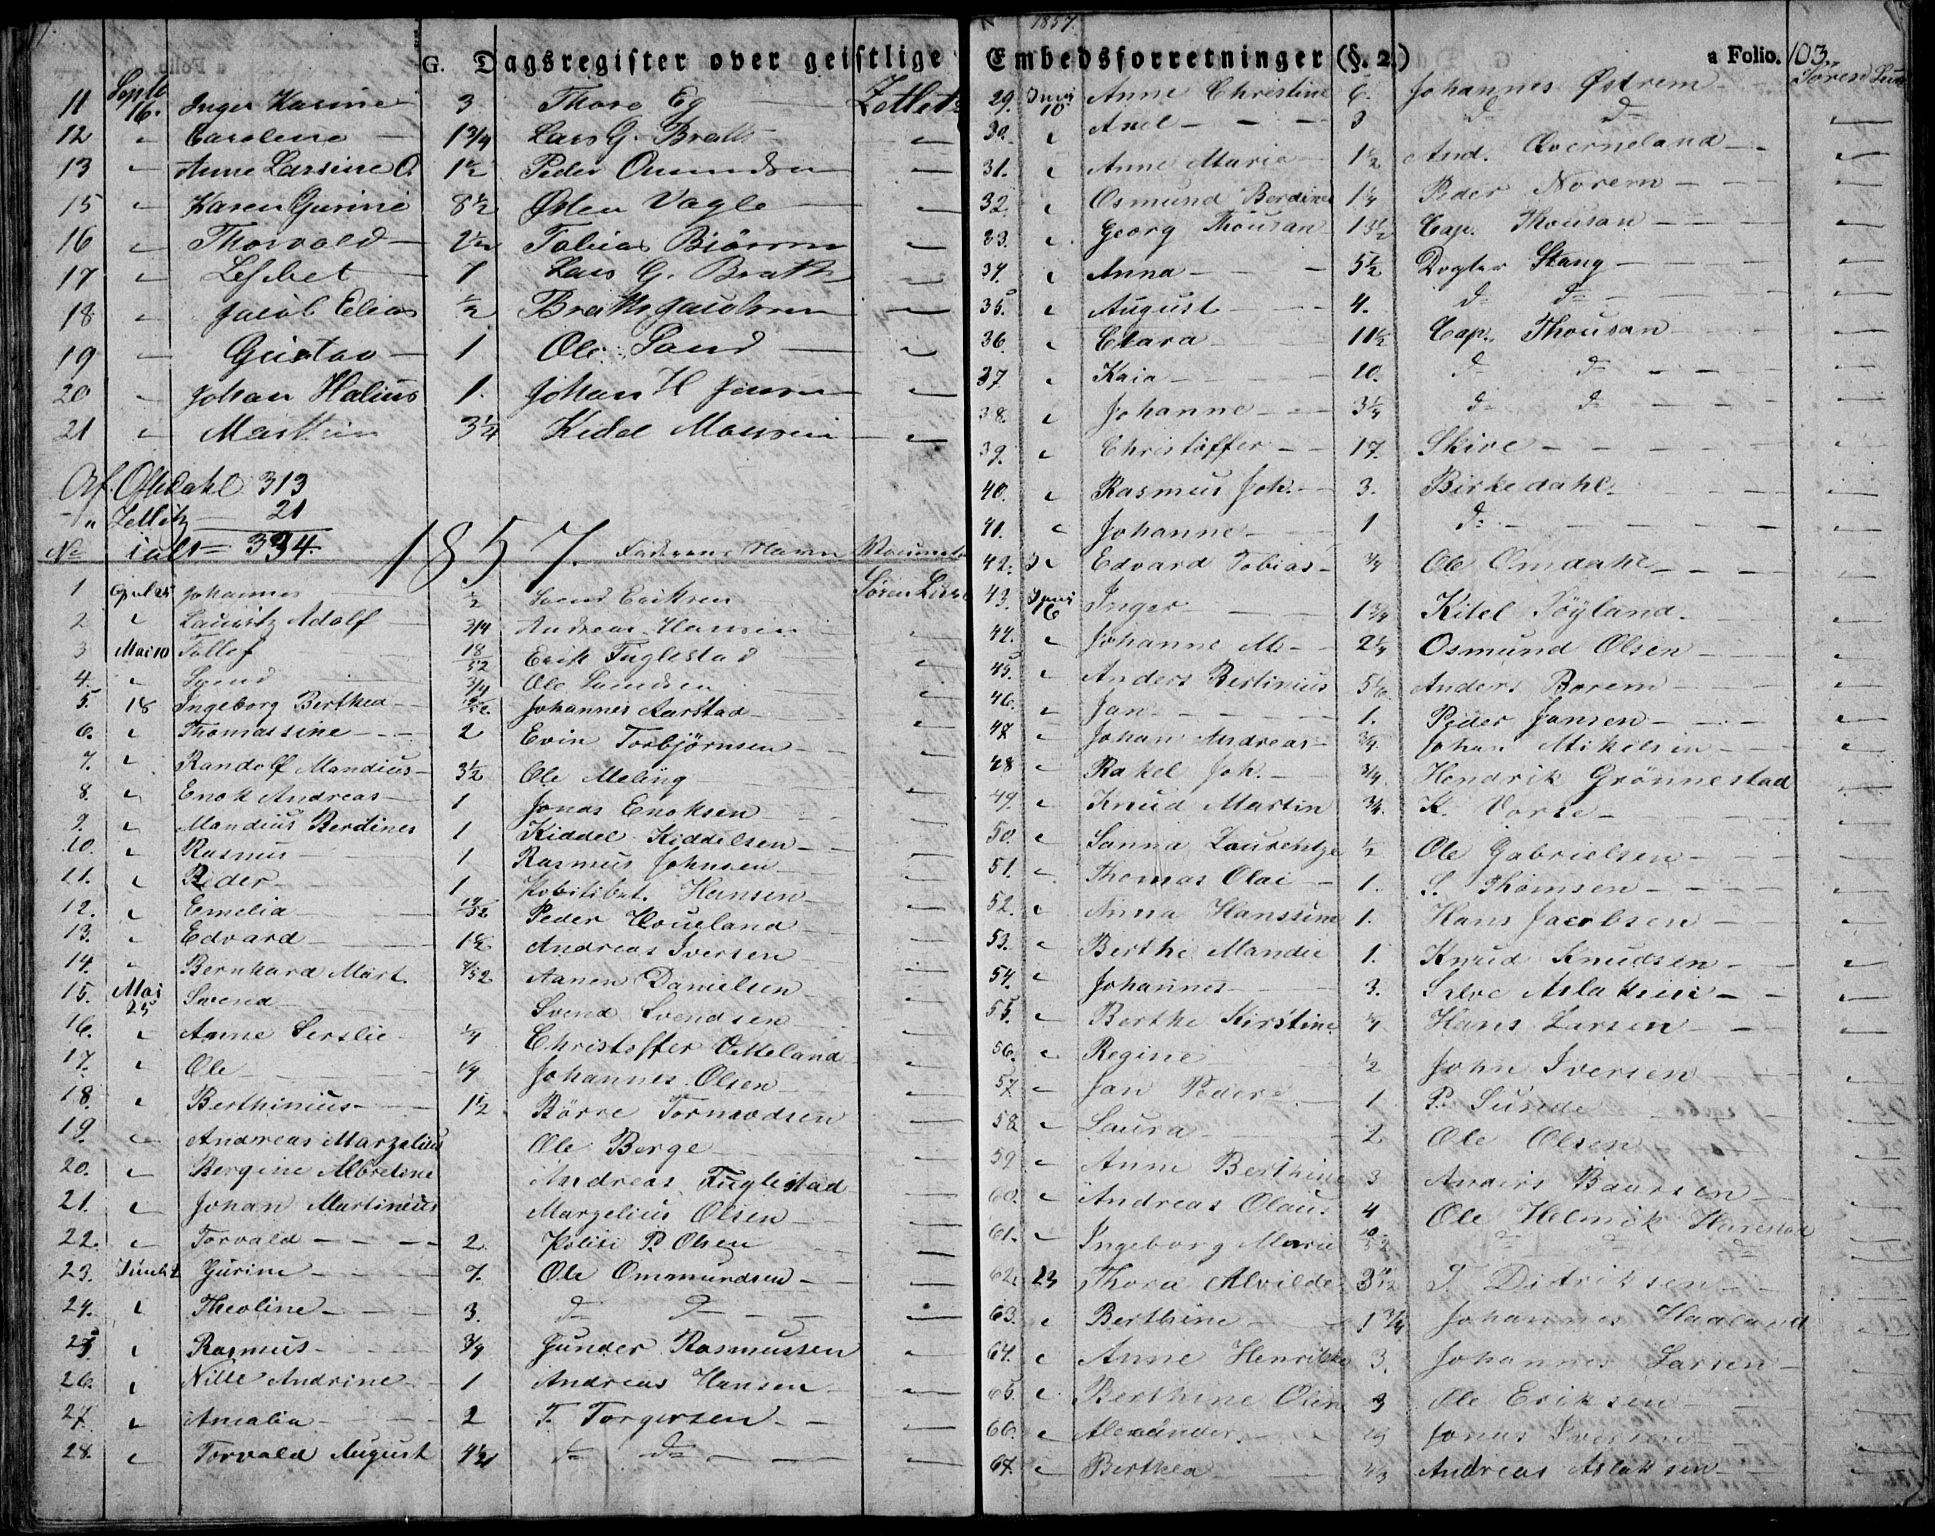 G. Dagsregister over geistlige
11 Septb 16. Inger Karine 3 Thore Eg Zetlitz
12 " Caroline 1 3/4 Lars G. Brath "
13 " Anne Larsine O. 1 1/2 Peder Omundsen "
15 " Karen Gurine 8 1/2 Østen Vagle "
16 " Thorvald 2 1/2 Tobias Biörnsen "
17 " Lisbet 1 Lars G. Brath "
18 " Jacob Elias 1/2 Brath Jacobsen "
19 " Gustav 1 Ole Sand "
20 " Johan Halius 1. Johan H "
21 " Martin 3 1/4 Kidel "
Af Oftedahl 313
" Zetlitz 21
ialt = 334.
No 1857. Faderens Navn Vaccinateur
1 April 25 Johannes 1/2 Svend Eriksen Sören
2 " Lauritz Adolf 3/4 Andreas Hansen "
3 Mai 10 Tollef 18/52 Erik Fuglestad "
4. " Svend 3/4 Ole "
5. 18 Ingeborg Berthea /52 Johannes Aarstad "
6. " Thomassine 2 Evin Torbjørnsen "
7. " Randolf Mandius 3 1/2 Ole Meling "
8. " Enok Andreas 1 Jonas Enoksen "
9. " Mandius Berdines 1 Kiddel Kiddelsen "
10. " Rasmus 1 Rasmus Johnsen "
11. " Peder 1 Hansen "
12. " Emelia /52 Peder Houeland "
13. " Edvard 1 1/2 Andreas Iversen "
14. " Bernhard Mart. /52 Aanen Danielsen "
15. Mai 25 Svend Svend Svendsen "
16. " Anne Serslie 1/4 Christoffer Vetteland "
17. " Ole 1/4 Johannes Olsen "
18. " Berthinius 1 1/2 Börre Tormodsen "
19. " Andreas Marzelius Ole Berge "
20. " Bergine Albretine Andreas Fuglestad "
21. " Johan Martinius Marzelius Olsen "
22. " Torvald 2. Politi P. Olsen "
23. Juni 2 Gurine 7. Ole Ommundsen "
24. " Theoline 3. do do "
25 " Rasmus 3/4 Gunder Rasmussen "
26. " Nille Andrine 1 Andreas Hansen "
27. " Amalia 2 T. Torgersen "
28. " Torvald August 4 1/2 do do "
1857.
Embedsforretninger (§. 2.) a Folio. 103.
29. Juni 10 Anne Christine 6. Johannes Østrem Sören
30. " Axel 3 do do "
31. " Anne Maria 1 1/2 And. Qverneland "
32. " Osmund Berdines 1 1/4 Peder Norem "
33. " Georg Thousan 13 1/2 Cap. Thousan "
34. " Anna 5 1/2 Dogter Stang "
35. " August 4. do do "
36. " Clara 11 1/2 Cap. Thousan "
37 " Kaia 10. do do "
38 " Johanne 3 1/4 do do "
39. " Christoffer 17. Skive "
40. " Rasmus Joh. 3. Birkedahl "
41. " Johanne 1 do "
42. " Edvard Tobias 1/4 Ole Omdahl "
43. Juni 16 Inger 1 3/4 Kitel Töyland "
44. " Johanne M. 2 1/4 Osmund Olsen "
45. " Anders Bertinius 5 1/6 Anders Borem "
46. " Jan 1. Peder Jansen "
47 " Johan Andreas 3/4 Johan Mikelsen "
48 " Rakel Joh. 3/4. Hendrik Grönnestad "
49. " Knud Martin 3/4. K. Vorse "
50. " Sanna Laurentze 1/2 Ole Gabrielsen "
51. " Thomas Olai 1. S. Thomsen "
52. " Anna Hanssine 1. Hans Jacobsen "
53. " Berthe Mandie 1. Knud Knudsen "
54. " Johannes 3. Selve Aslaksen "
55. " Berthe Kirstine 1/4 Hans Larsen "
56. " Regine 1/2 John Iversen "
57 " Jan Peder 1 P. Sunde "
58 " Laura 2 Ole Olsen "
59 " Anne Berthine 3 Anders Baarsen "
60. " Andreas Olaus 4 Ole Helmik Harestad "
61. " Ingeborg Marie 10/52 do do do "
62. 23 Thora Alvilde 3 1/2 T. Didriksen "
63. " Berthine 1 3/4 Johannes Haaland "
64. " Anne Henrikke 3. Johannes Larsen "
65. " Berthine Olin 3 Ole Eriksen "
66. " Alexander Jonas Iversen "
67. " Berthea 2/3 Andreas Aslaksen "